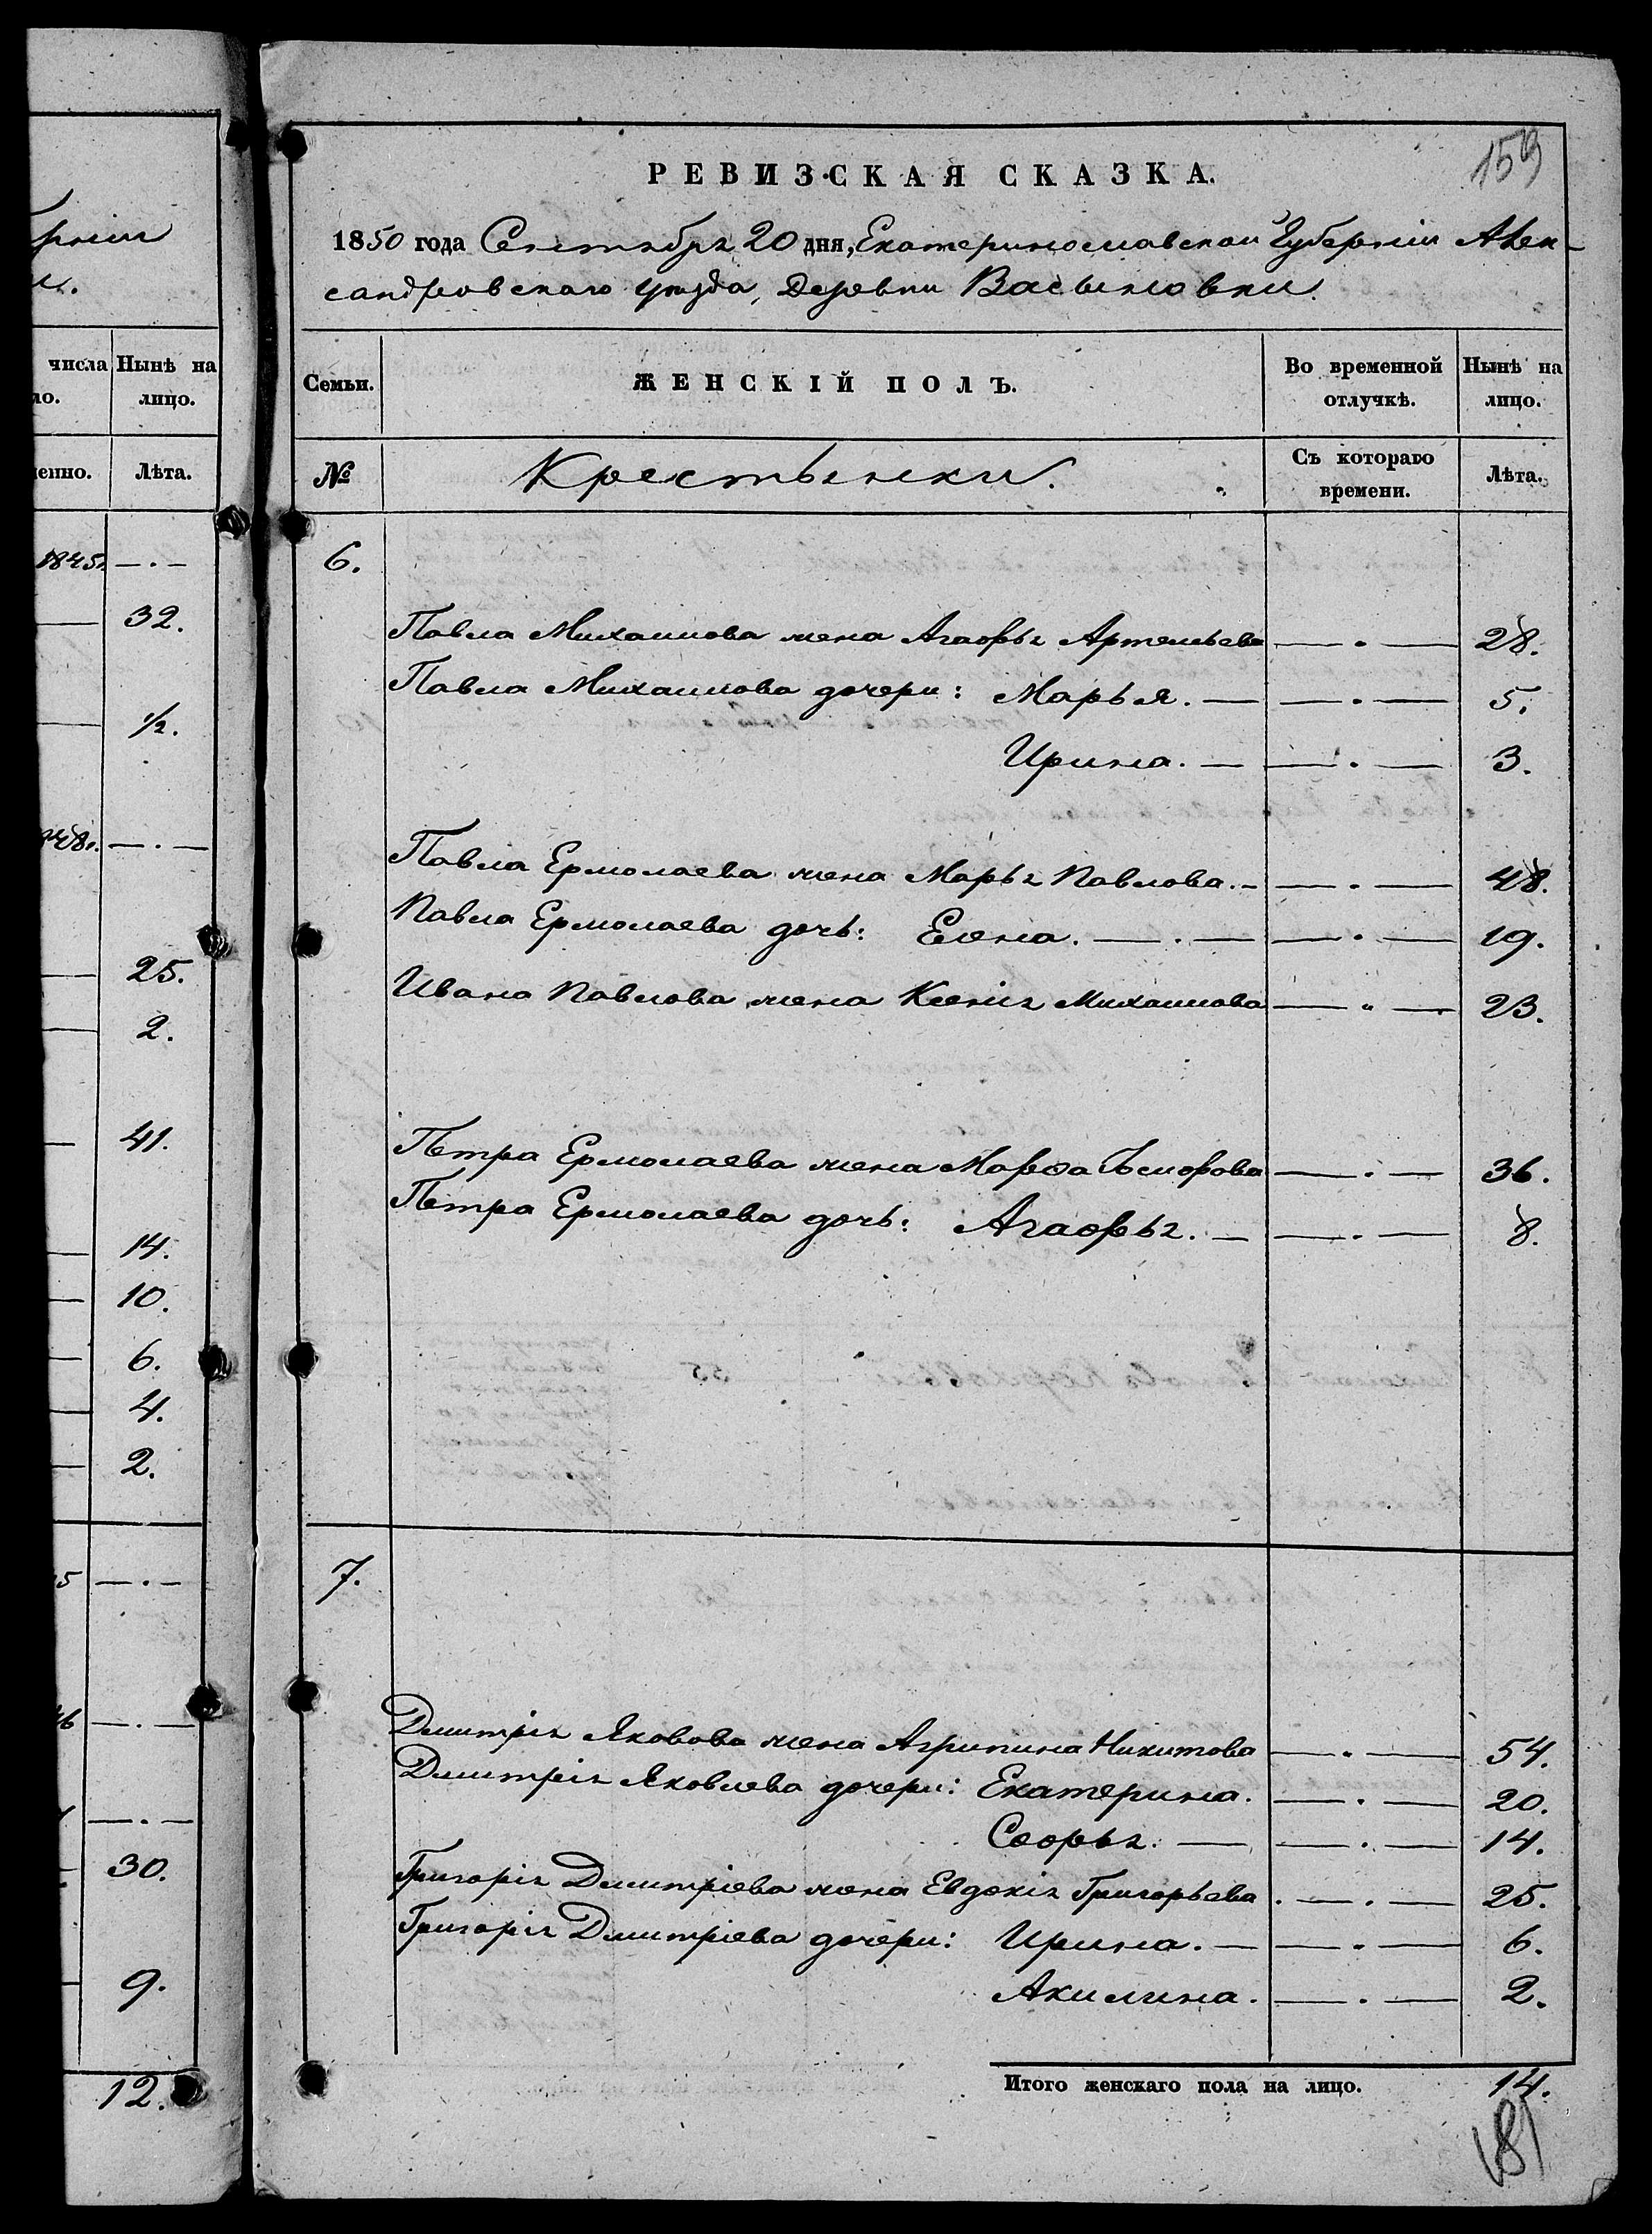 159
РЕВИЗСКАЯ СКАЗКА.
1850 года Сентября 20 дня, Екатеринославской Губерніи Алек-
сандровскаго уѣзда, Деревни Васыновки.
числа
Нынѣ на
ло.
лицо.
енно.
Лѣта.
1845
32.
1/2.
25.
2.
41.
14.
10.
6.
4.
2.
30.
9.
12.
Семьи.
ЖЕНСКІЙ ПОЛЪ.
Во временной
отлучкѣ.
Нынѣ на
лицо.
№
Крестьянки.
Съ котораго
времени.
Лѣта.
6.
Павла Михаилова жена Агафья Артемьева — . — 28.
Павла Михаилова дочери: Марья. — — . — 5.
Ирина. — — . — 3.
Павла Ермолаева жена Марья Павлова. - — . — 48.
Павла Ермолаева дочь: Елена. — . — — . — 19.
Ивана Павлова жена Ксенія Михаилова — " — 23.
Петра Ермолаева жена Марѳа — . — 36.
Петра Ермолаева дочь: Агафья. — — . — 8.
7.
Дмитрія Яковова жена Агрипина Никитова — . — 54.
Дмитрія Яковлева дочери: Екатерина. — . — 20.
Софья. — — . — 14.
Григорія Дмитріева жена Евдокія Григорьева . — . — 25.
Григорія Дмитріева дочери: Ирина. — — . — 6.
Акилина. — . — 2.
Итого женскаго пола на лицо. 14.